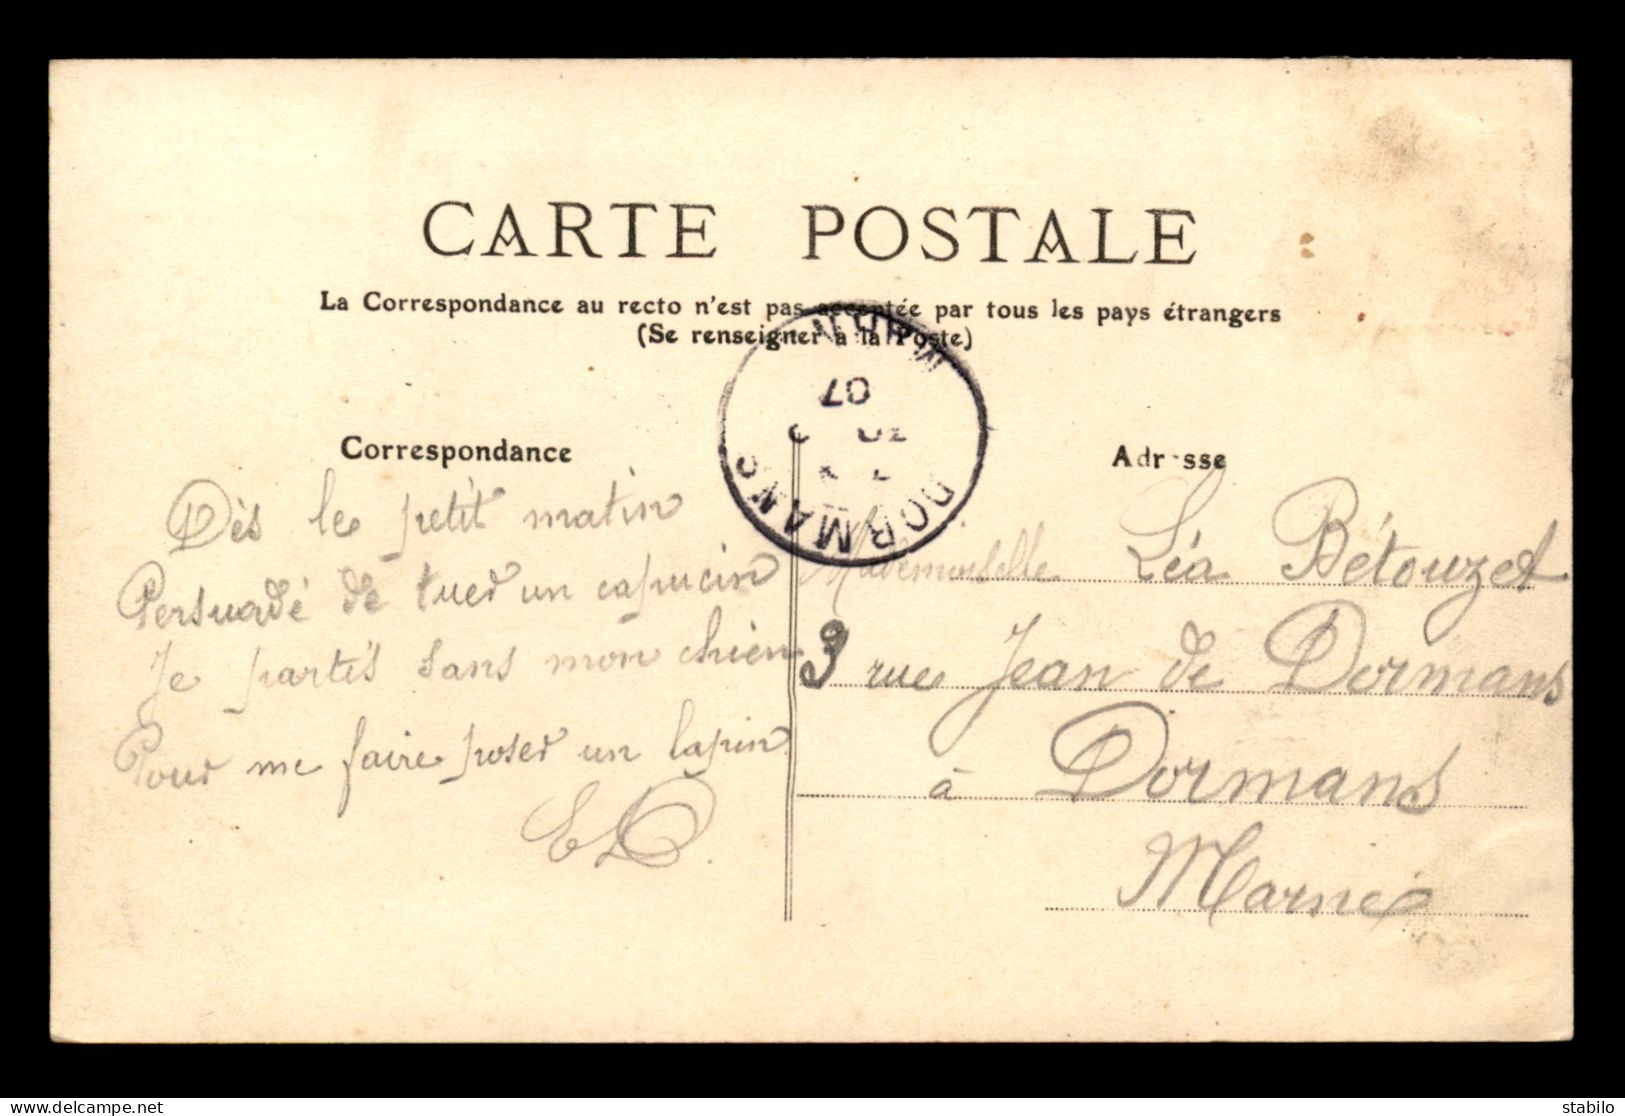 CARTE POSTALE
La Correspondance au recto n'est pas acceptée par tous les pays étrangers
(Se renseigner à la Poste)
MARNE
07
DORMANS
Correspondance
Dès le petit matin
Persuadé de tuer un capucin
Je partis sans mon chien
Pour me faire poser un lapin
Adresse
Mademoiselle Léa Bétouzet
3 rue Jean de Dormans
à Dormans
Marne
delcampe.net
stabilo